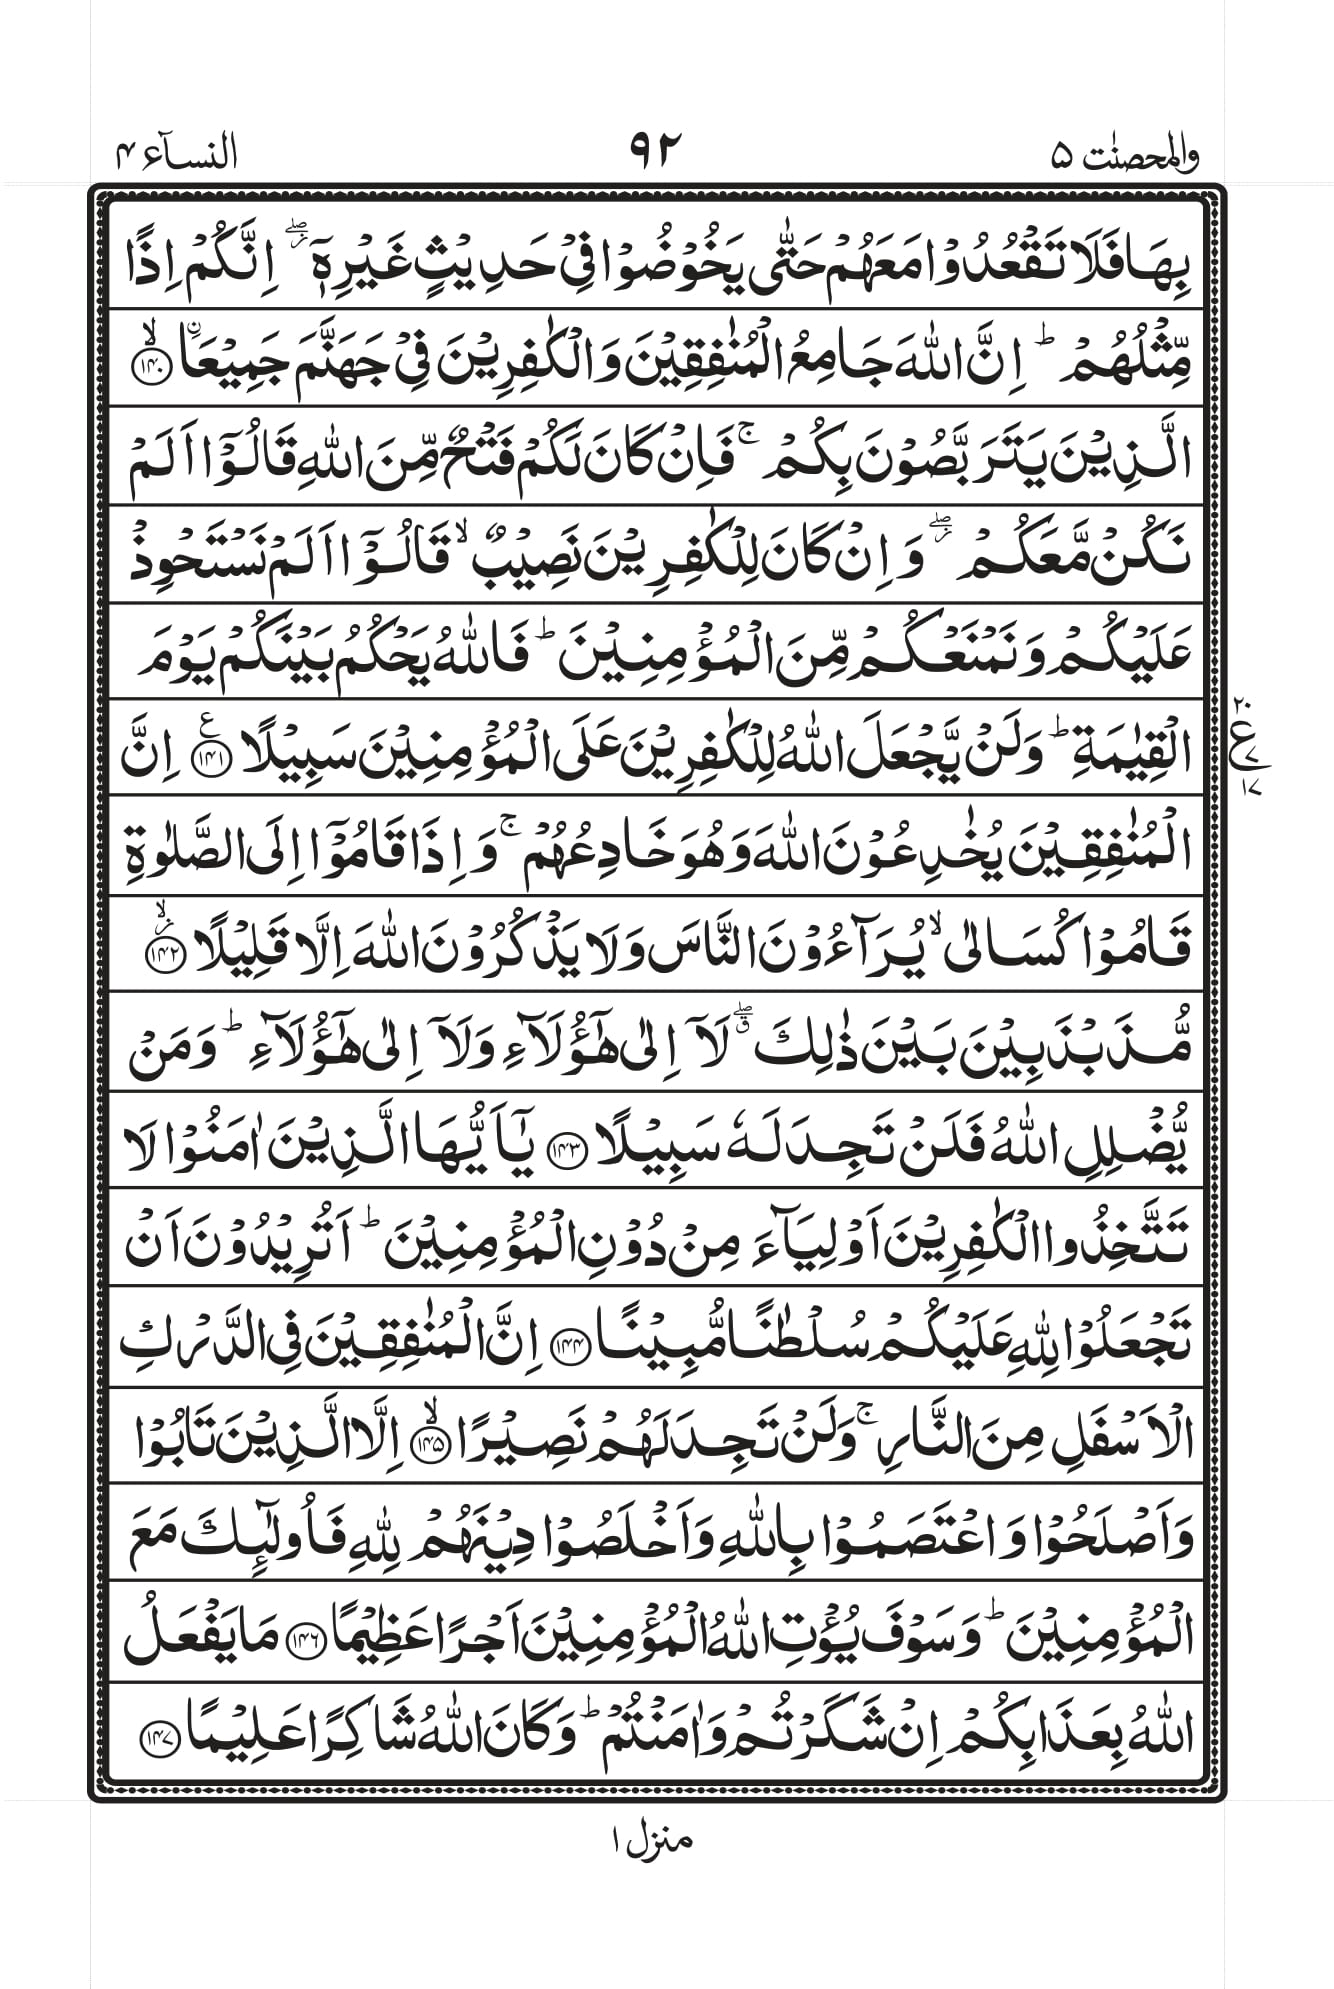 والمحصنٰت ۵ ۹۲ النسآء ۴
بِهَا فَلَا تَقْعُدُوْا مَعَهُمْ حَتّٰى يَخُوْضُوْا فِيْ حَدِيْثٍ غَيْرِهٖٓ ۖؗ اِنَّكُمْ اِذًا
مِّثْلُهُمْ ؕ اِنَّ اللّٰهَ جَامِعُ الْمُنٰفِقِيْنَ وَالْكٰفِرِيْنَ فِيْ جَهَنَّمَ جَمِيْعَاۨ ۙ﴿۱۴۰﴾
الَّذِيْنَ يَتَرَبَّصُوْنَ بِكُمْ ۚ فَاِنْ كَانَ لَكُمْ فَتْحٌ مِّنَ اللّٰهِ قَالُوْۤا اَلَمْ
نَكُنْ مَّعَكُمْ ۖؗ وَاِنْ كَانَ لِلْكٰفِرِيْنَ نَصِيْبٌ ۙ قَالُوْۤا اَلَمْ نَسْتَحْوِذْ
عَلَيْكُمْ وَنَمْنَعْكُمْ مِّنَ الْمُؤْمِنِيْنَ ؕ فَاللّٰهُ يَحْكُمُ بَيْنَكُمْ يَوْمَ
الْقِيٰمَةِ ؕ وَلَنْ يَّجْعَلَ اللّٰهُ لِلْكٰفِرِيْنَ عَلَى الْمُؤْمِنِيْنَ سَبِيْلًا ﴿۱۴۱﴾ ع اِنَّ
۲۰
ع
۷
۱۷
الْمُنٰفِقِيْنَ يُخٰدِعُوْنَ اللّٰهَ وَهُوَ خَادِعُهُمْ ۚ وَاِذَا قَامُوْۤا اِلَى الصَّلٰوةِ
قَامُوْا كُسَالٰى ۙ يُرَآءُوْنَ النَّاسَ وَلَا يَذْكُرُوْنَ اللّٰهَ اِلَّا قَلِيْلًا ۙؗ﴿۱۴۲﴾
مُّذَبْذَبِيْنَ بَيْنَ ذٰلِكَ ۖۗ لَاۤ اِلٰى هٰۤؤُلَآءِ وَلَاۤ اِلٰى هٰۤؤُلَآءِ ؕ وَمَنْ
يُّضْلِلِ اللّٰهُ فَلَنْ تَجِدَ لَهٗ سَبِيْلًا ﴿۱۴۳﴾ يٰۤاَيُّهَا الَّذِيْنَ اٰمَنُوْا لَا
تَتَّخِذُوا الْكٰفِرِيْنَ اَوْلِيَآءَ مِنْ دُوْنِ الْمُؤْمِنِيْنَ ؕ اَتُرِيْدُوْنَ اَنْ
تَجْعَلُوْا لِلّٰهِ عَلَيْكُمْ سُلْطٰنًا مُّبِيْنًا ﴿۱۴۴﴾ اِنَّ الْمُنٰفِقِيْنَ فِي الدَّرْكِ
الْاَسْفَلِ مِنَ النَّارِ ۚ وَلَنْ تَجِدَ لَهُمْ نَصِيْرًا ۙ﴿۱۴۵﴾ اِلَّا الَّذِيْنَ تَابُوْا
وَاَصْلَحُوْا وَاعْتَصَمُوْا بِاللّٰهِ وَاَخْلَصُوْا دِيْنَهُمْ لِلّٰهِ فَاُولٰٓئِكَ مَعَ
الْمُؤْمِنِيْنَ ؕ وَسَوْفَ يُؤْتِ اللّٰهُ الْمُؤْمِنِيْنَ اَجْرًا عَظِيْمًا ﴿۱۴۶﴾ مَا يَفْعَلُ
اللّٰهُ بِعَذَابِكُمْ اِنْ شَكَرْتُمْ وَاٰمَنْتُمْ ؕ وَكَانَ اللّٰهُ شَاكِرًا عَلِيْمًا ﴿۱۴۷﴾
منزل ۱